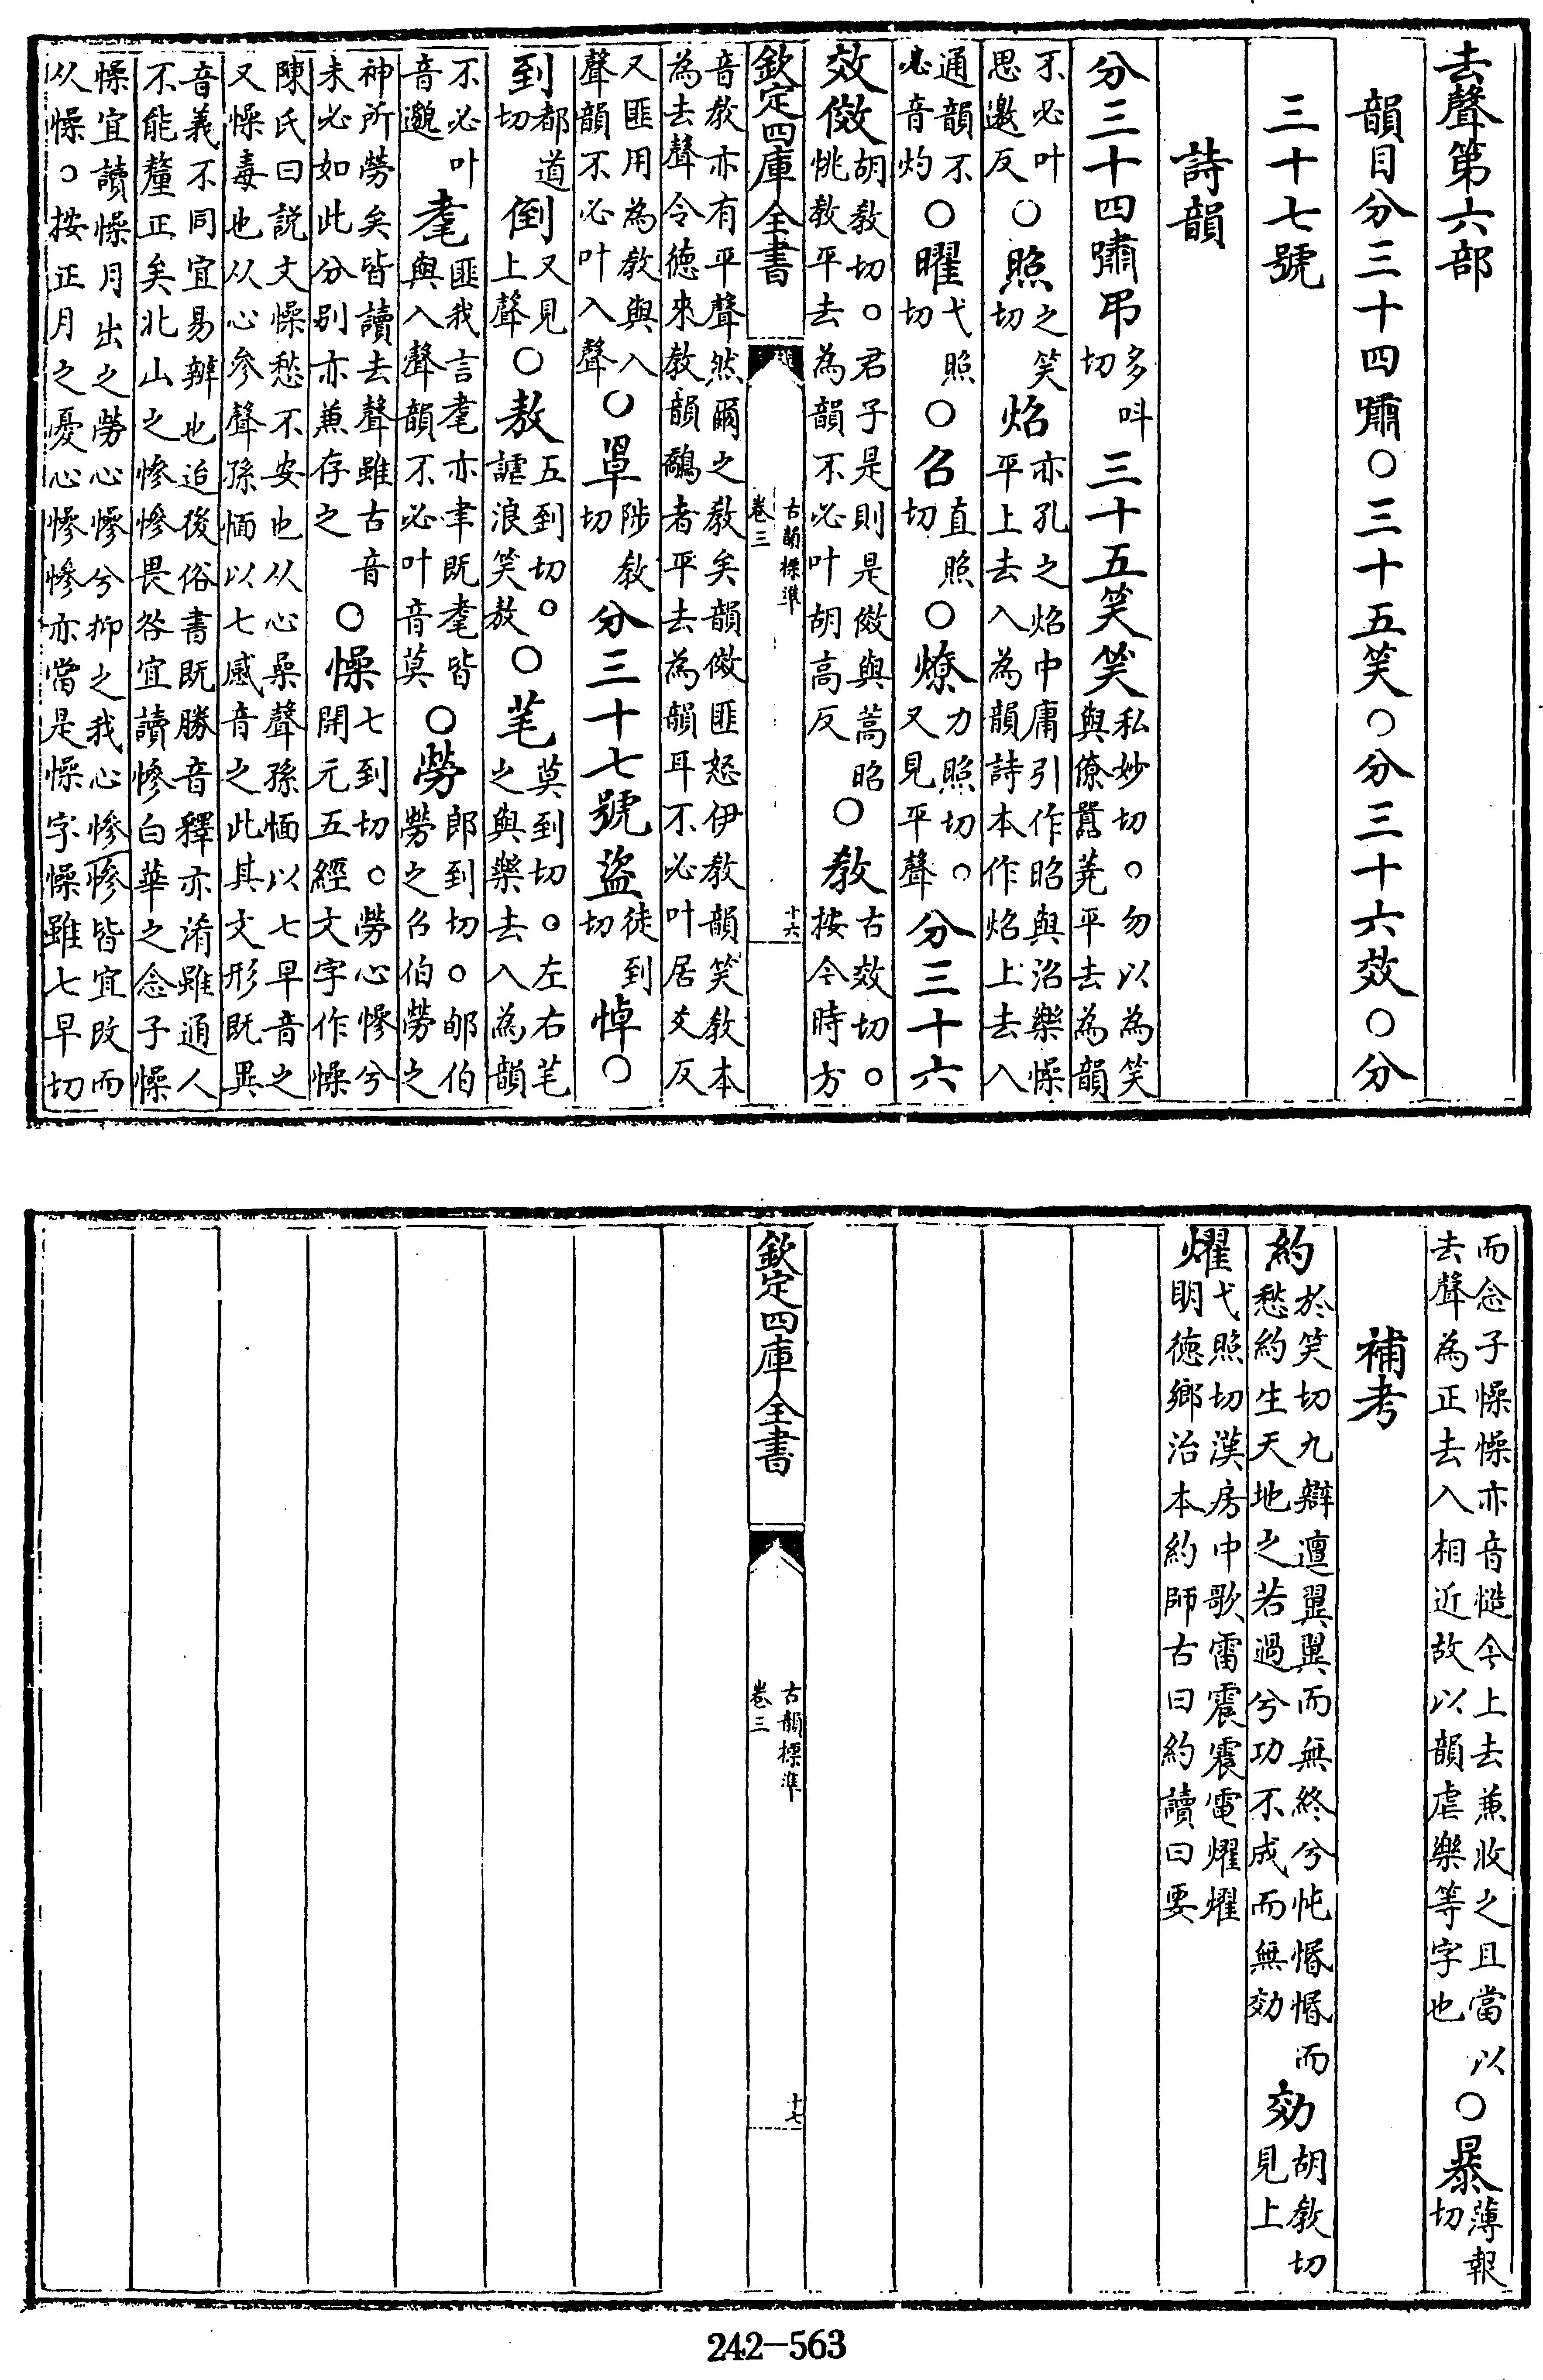 去聲第六部
韻目分三十四嘯○三十五笑○分三十六效○分
三十七號
詩韻
分三十四嘯弔多呌切三十五笑笑私妙切○勿以為笑與僚囂蕘平去為韻
不必叶思邀反○照之笑切炤亦孔之炤中庸引作昭與沼樂懆平上去入為韻詩本作炤上去入
通韻不必音灼○曜弋照切○召直照切○燎力照切○又見平聲分三十六
效傚胡教切○君子是則是傚與蒿昭恌敖平去為韻不必叶胡高反○教古效切○按今時方
欽定四庫全書 古韻標準卷三 十六
音教亦有平聲然爾之教矣韻傚匪怒伊教韻笑教本為去聲令德來教韻鷮者平去為韻耳不必叶居爻反
又匪用為教與入聲韻不必叶入聲○罩陟教切分三十七號盜徒到切悼○
到都道切倒又見上聲○敖五到切○謔浪笑敖○芼莫到切○左右芼之與樂去入為韻
不必叶音邈耄匪我言耄亦聿既耄皆與入聲韻不必叶音莫○勞郎到切○郇伯勞之召伯勞之
神所勞矣皆讀去聲雖古音未必如此分别亦兼存之○懆七到切○勞心慘兮開元五經文字作懆
陳氏曰説文懆愁不安也从心喿聲孫愐以七早音之又慘毒也从心參聲孫愐以七感音之此其文形既異
音義不同宜易辨也迨後俗書既勝音釋亦淆雖通人不能釐正矣北山之慘慘畏咎宜讀慘白華之念子懆
懆宜讀懆月出之勞心慘兮抑之我心慘慘皆宜改而从懆○按正月之憂心慘慘亦當是懆字懆雖七早切
而念子懆懆亦音慥今上去兼收之且當以去聲為正去入相近故以韻虐樂等字也○暴薄報切
補考
約於笑切九辯邅翼翼而無終兮忳惛惛而愁約生天地之若過兮功不成而無効効胡教切見上
燿弋照切漢房中歌雷震震電燿燿明德鄉治本約師古曰約讀曰要
欽定四庫全書 古韻標準卷三 十七
242—563